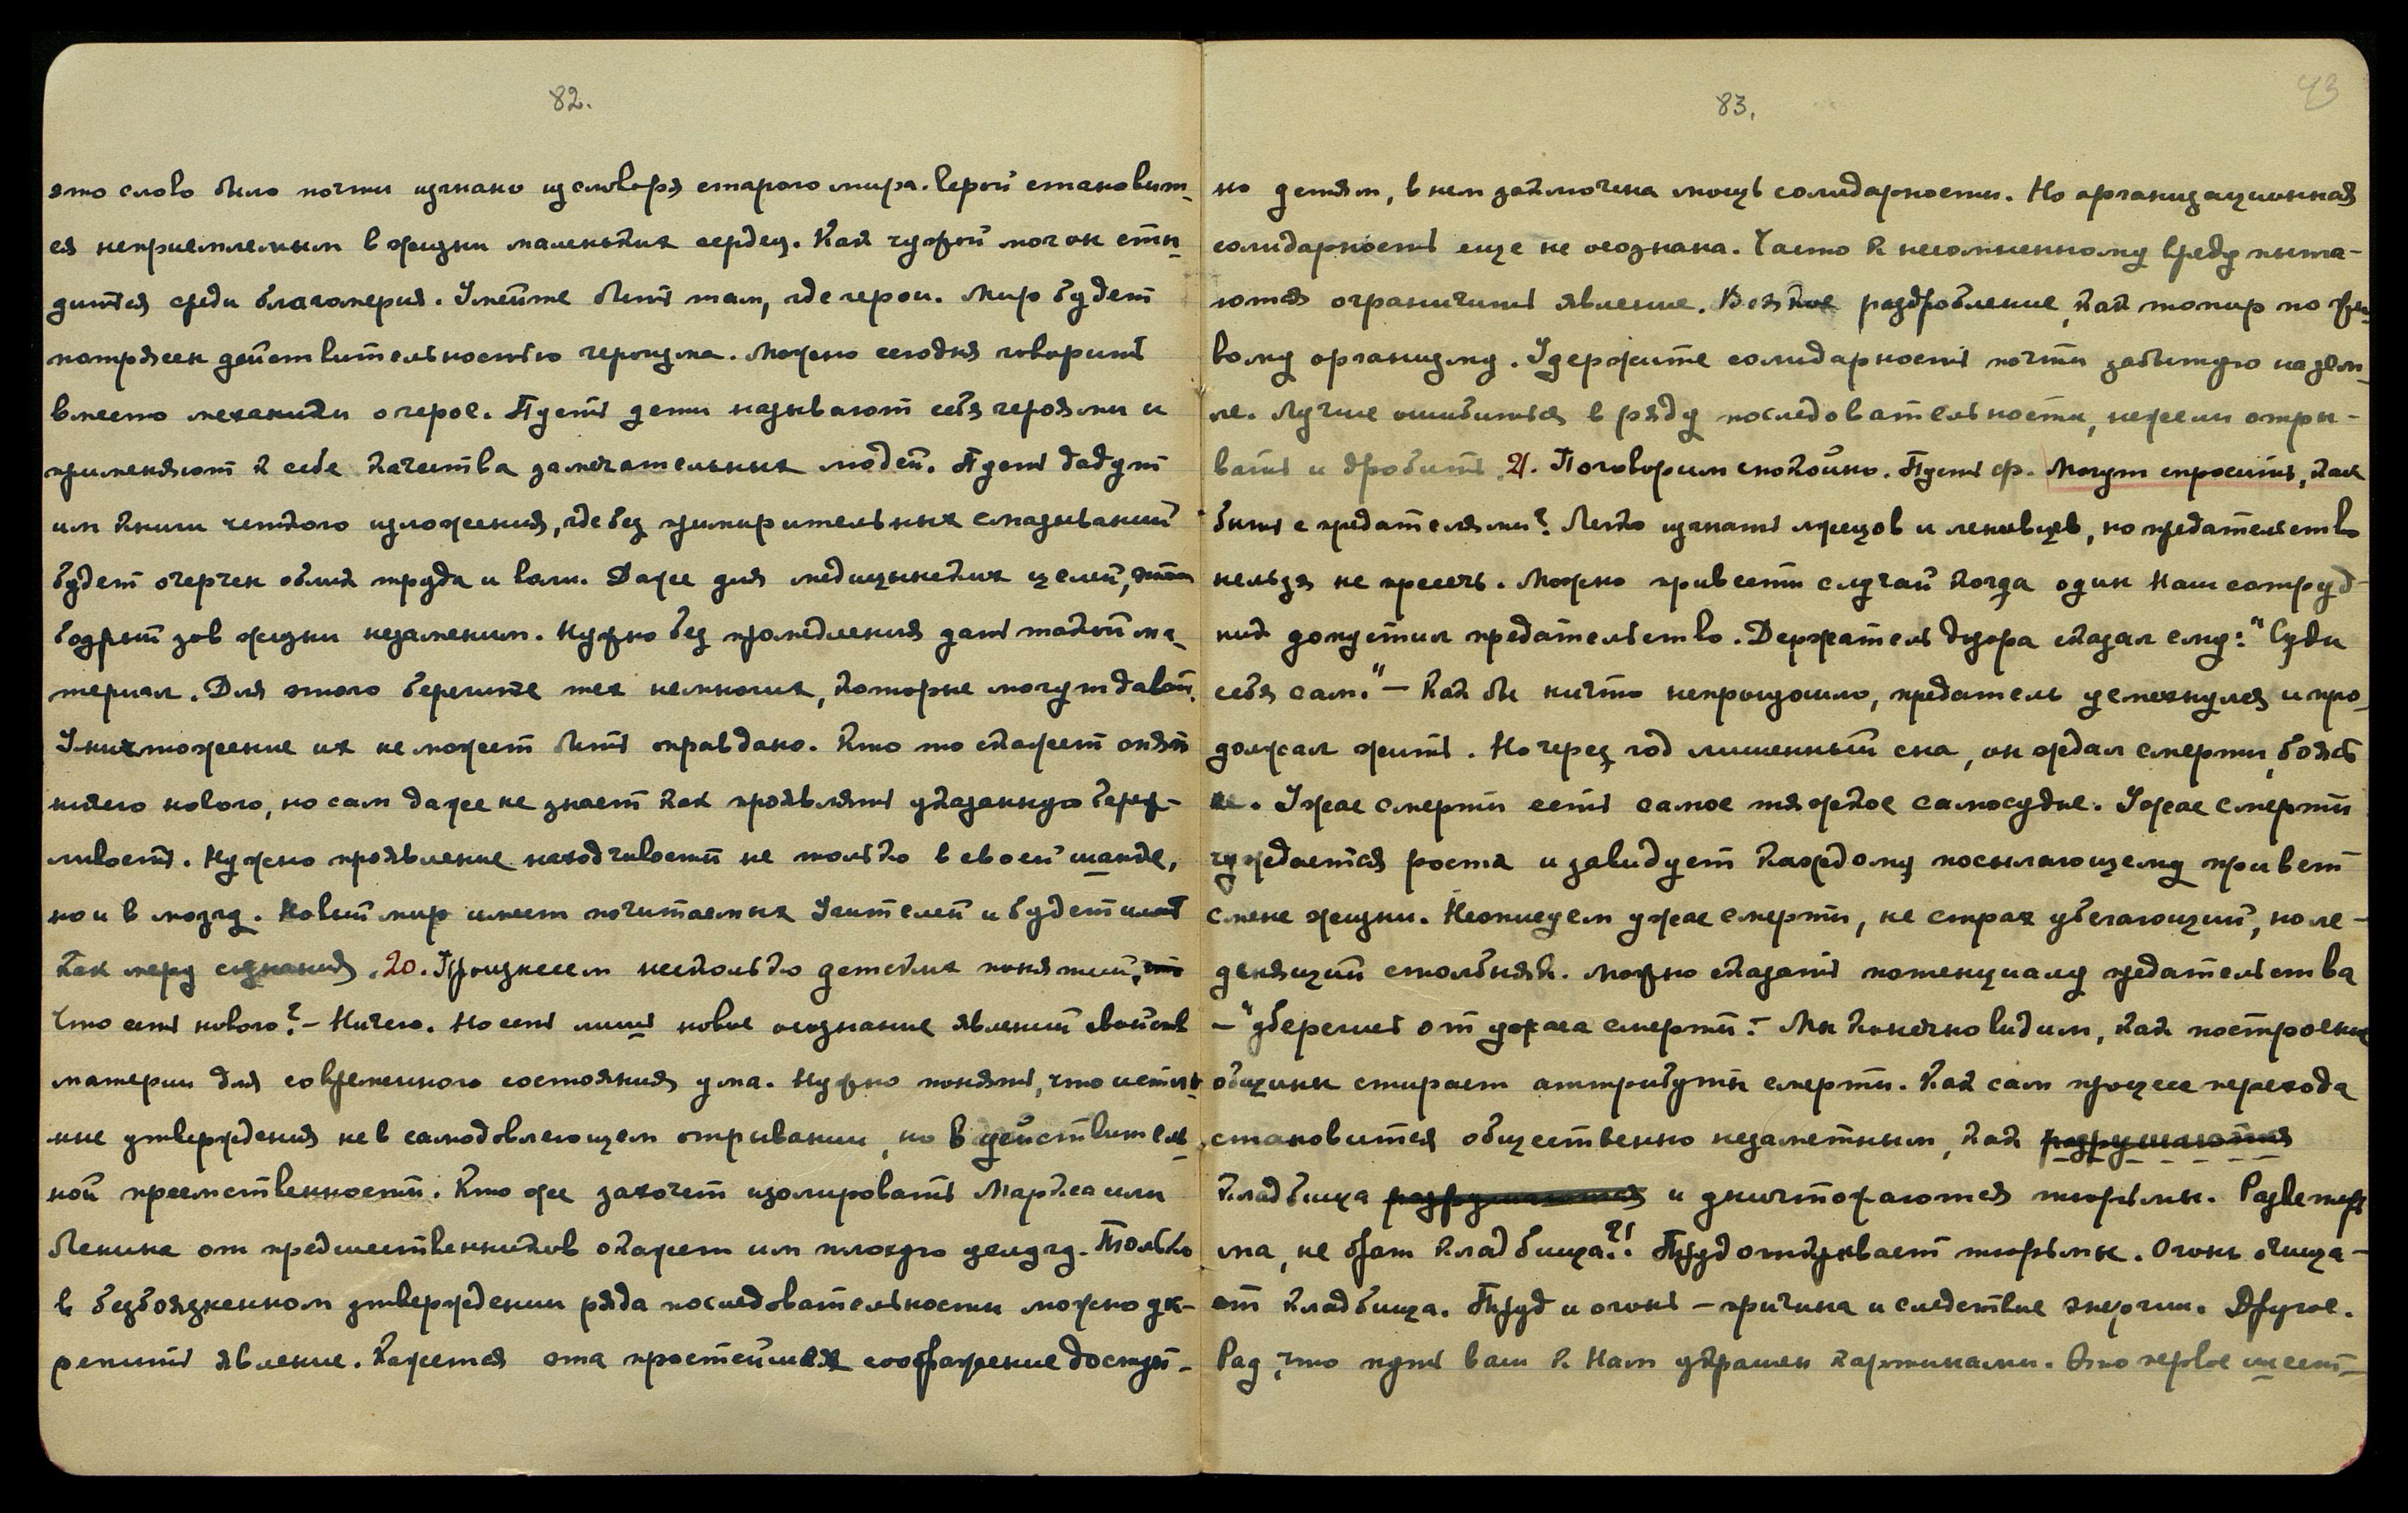 82.
это слово было почти изгнано из словаря старого мира. Герой становит-
ся неприемлемым в жизни маленьких сердец. Как чужой мог он сты-
диться среди благомерия. Умейте быть там, где герои. Мир будет
потрясен действительностью героизма. Можно сегодня говорить
вместо механики о герое. Пусть дети называют себя героями и
применяют к себе качества замечательных людей. Пусть дадут
им книги четкого изложения, где без примирительных смазываний
будет очерчен облик труда и воли. Даже для медицинских целей, этот
бодрый зов жизни незаменим. Нужно без промедления дать такой ма-
териал. Для этого берегите тех немногих, которые могут давать.
Уничтожение их не может быть оправдано. Кто то скажет опять
ничего нового, но сам даже не знает как проявлять указанную береж-
ливость. Нужно проявление находчивости не только в своей шапке,
но и в мозгу. Новый мир имеет почитаемых Учителей и будет иметь
как меру сознания. 20. Произнесем несколько детских понятий,
Что есть нового? – Ничего. Но есть лишь новое осознание явлений свойств
материи для современного состояния ума. Нужно понять, что истин-
ные утверждения не в самодовлеющем отрывании, но в действитель-
ной преемственности. Кто же захочет изолировать Маркса или
Ленина от предшественников окажет им плохую услугу. Только
в безбоязненном утверждении ряда последовательности можно ук-
репить явление. Кажется эта простейшая соображение доступ-
83.
43
но детям, в нем заключена мощь солидарности. Но организационная
солидарность еще не осознана. Часто к несомненному вреду пыта-
ются ограничить явление. Всякое раздробление, как топор по жи-
вому организму. Удержите солидарность почти забытую на зем-
ле. Лучше ошибиться в ряду последовательности, нежели отры-
вать и дробить 21. Поговорим спокойно. Пусть ф. Могут спросить, как
быть с предателями? Легко изгнать лжецов и ленивцев, но предательство
нельзя не пресечь. Можно привести случай когда один Наш сотруд-
ник допустил предательство. Держатель дозора сказал ему: "Суди
себя сам." – Как бы ничто непроизошло, предатель усмехнулся и про-
должал жить. Но через год лишенный сна, он ждал смерти, боясь
ее. Ужас смерти есть самое тяжкое самосудие. Ужас смерти
чуждается роста и завидует каждому посылающему привет
смене жизни. Неописуем ужас смерти, не страх убегающий, но ле-
денящий столбняк. Можно сказать потенциалу предательства
– "уберегись от ужаса смерти". – Мы конечно видим, как построение
общины стирает аттрибуты смерти. Как сам процесс перехода
становится общественно незаметным, как разрушаются
кладбища разрушаются и уничтожаются тюрьмы. Разве тюрь-
ма, не брат кладбища?! Труд отмыкает тюрьмы. Огонь очища-
ет кладбища. Труд и огонь – причина и следствие энергии. Другое.
Рад, что путь ваш к Нам украшен картинами. Это первое шест-